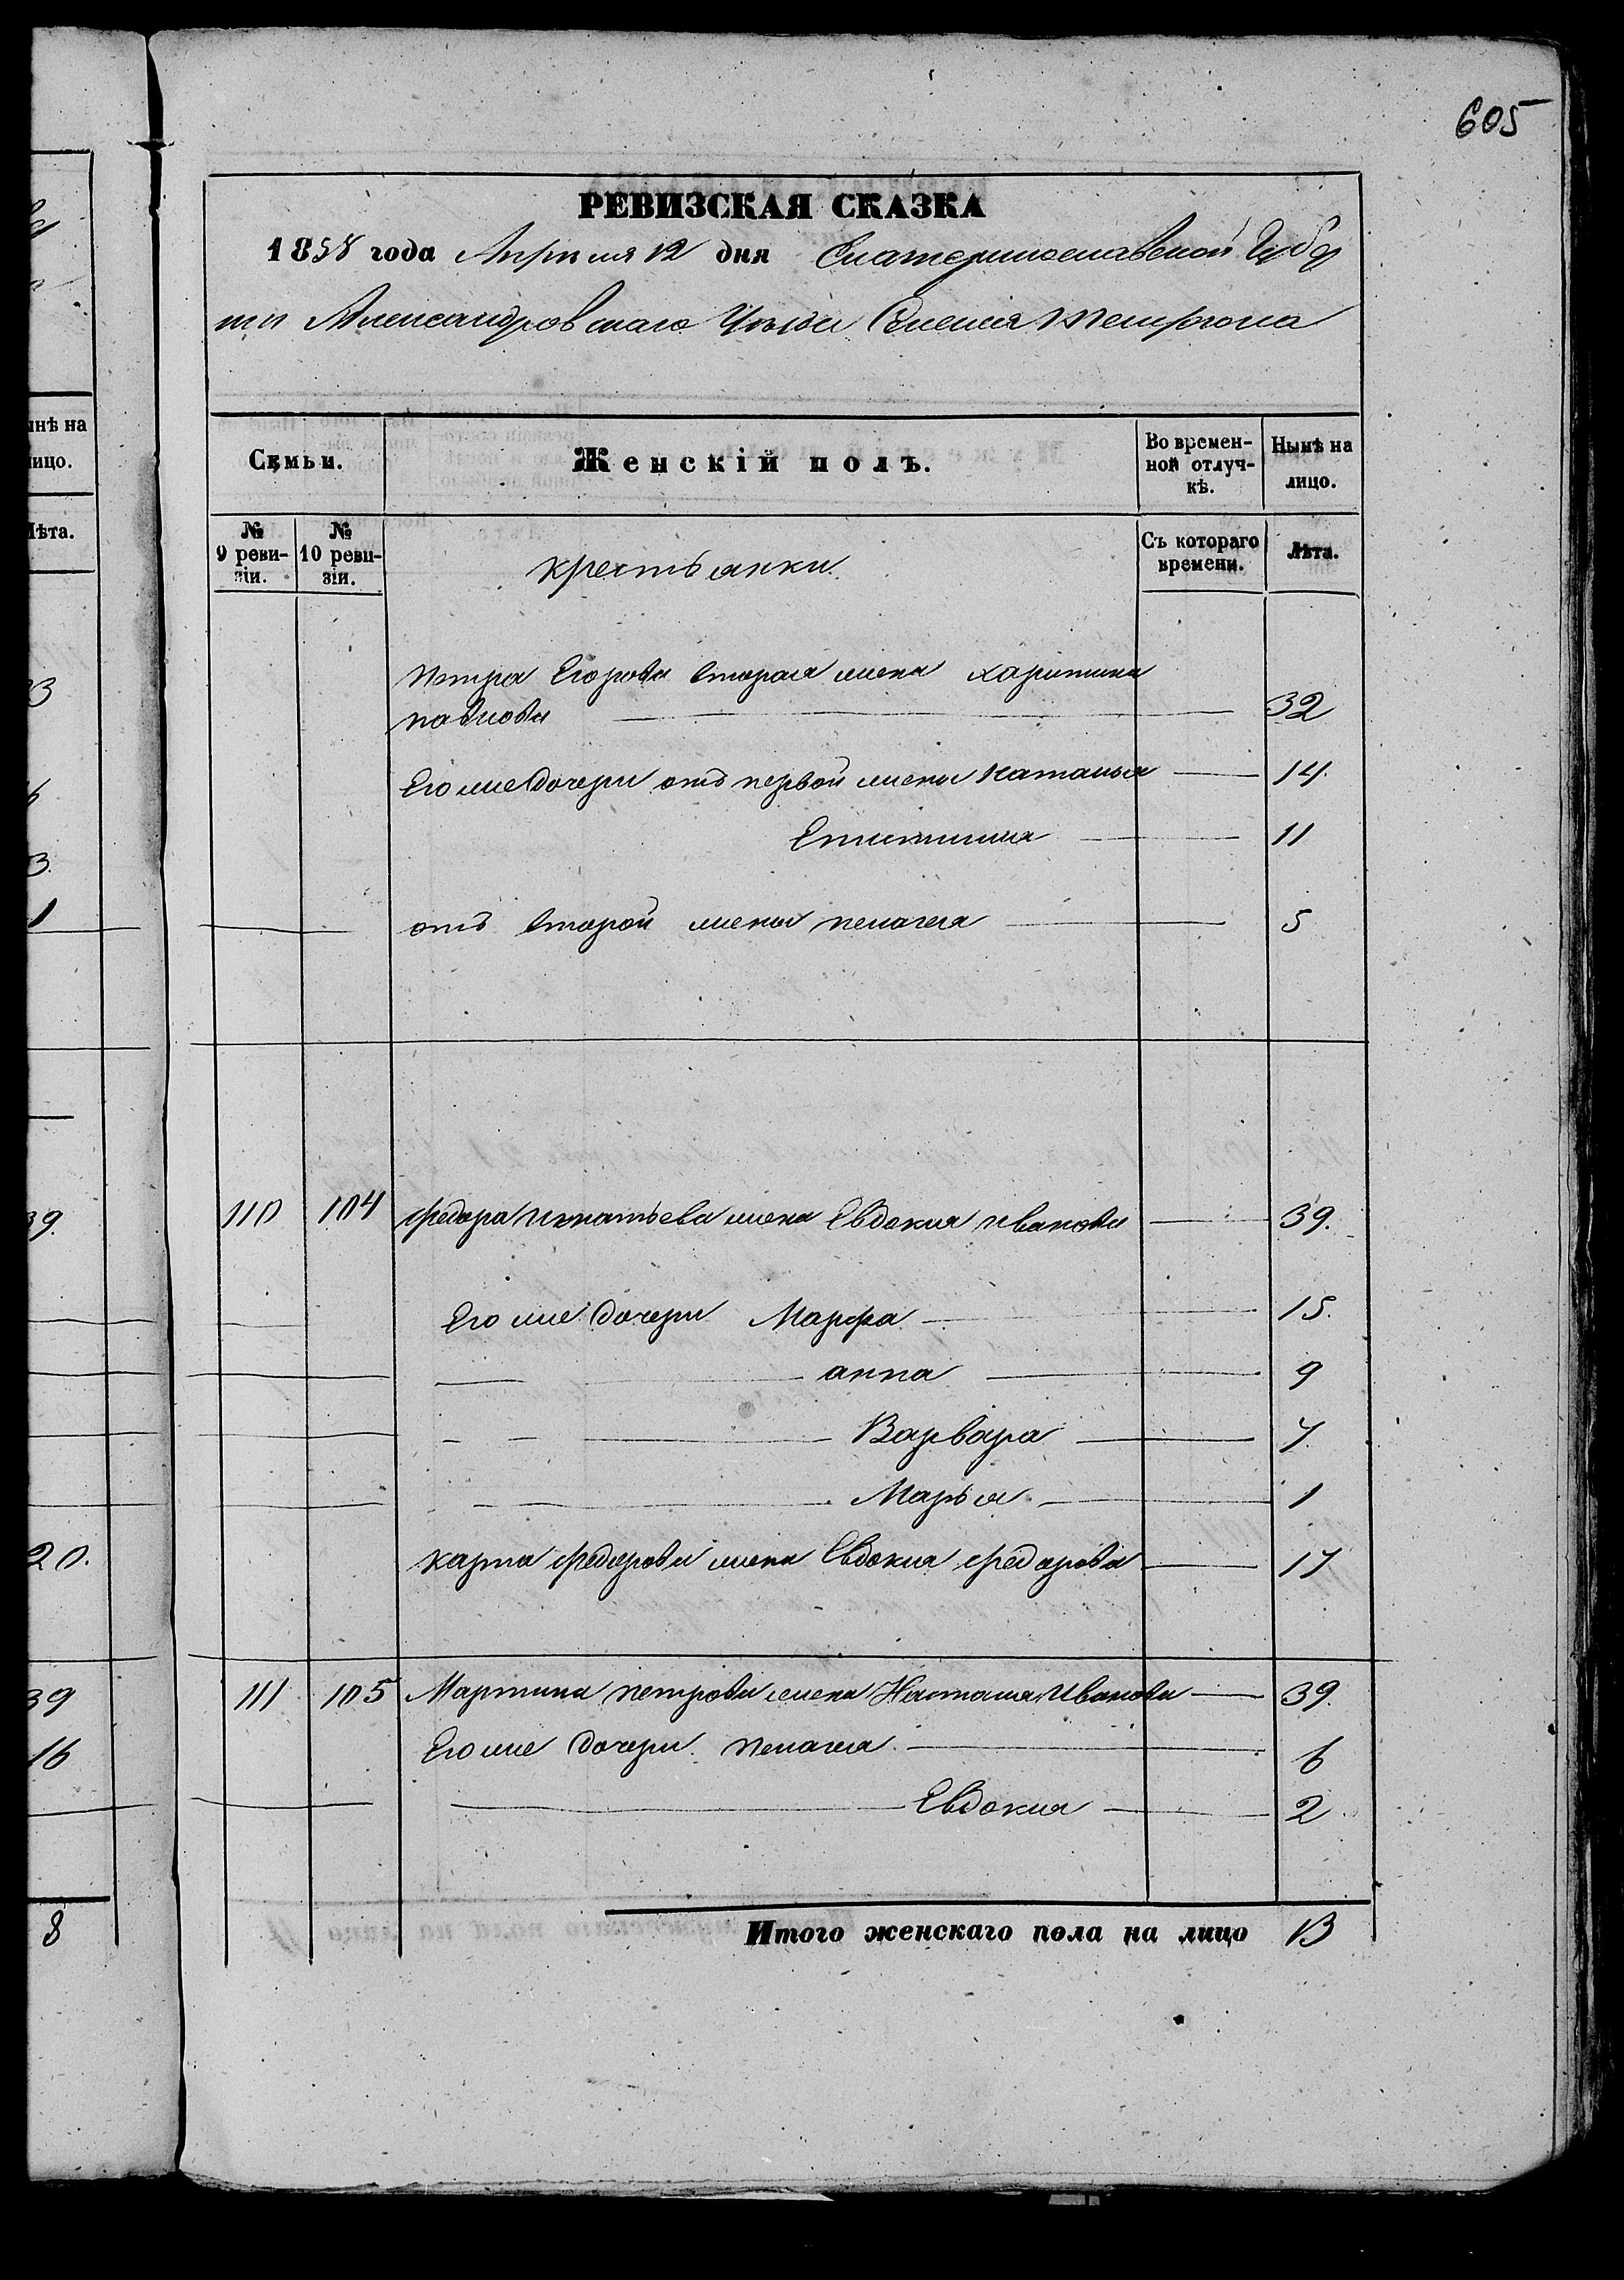 605
РЕВИЗСКАЯ СКАЗКА
1858 года Апреля 12 дня Екатеринославской Губер
нии Александровскаго Уезда Селенія
Семьи.
Женскій полъ.
Во времен-
ной отлуч-
кѣ.
Нынѣ на
лицо.
№
9 реви-
зіи.
№
10 реви-
зіи.
крестьянки.
Съ котораго
времени.
Лѣта.
Петра Егорова вторая жена Харитина
павлова 32
Его же дочери отъ первой жены Наталья 14.
11
отъ второй жены пелагея 5
110 104 федора игнатьева жена Евдокия иванова 39.
Его же дочери Марфа 15.
анна 9
Варвара 7
Марья 1
карпа федорова жена Евдокия федорова 17
111 105 Мартина петрова жена Иванова 39.
Его же дочери пелагея 6
Евдокия 2
Итого женскаго пола на лицо 13
инѣ на
ицо.
Лѣта.
3
3.
1
39.
20.
39
16
8